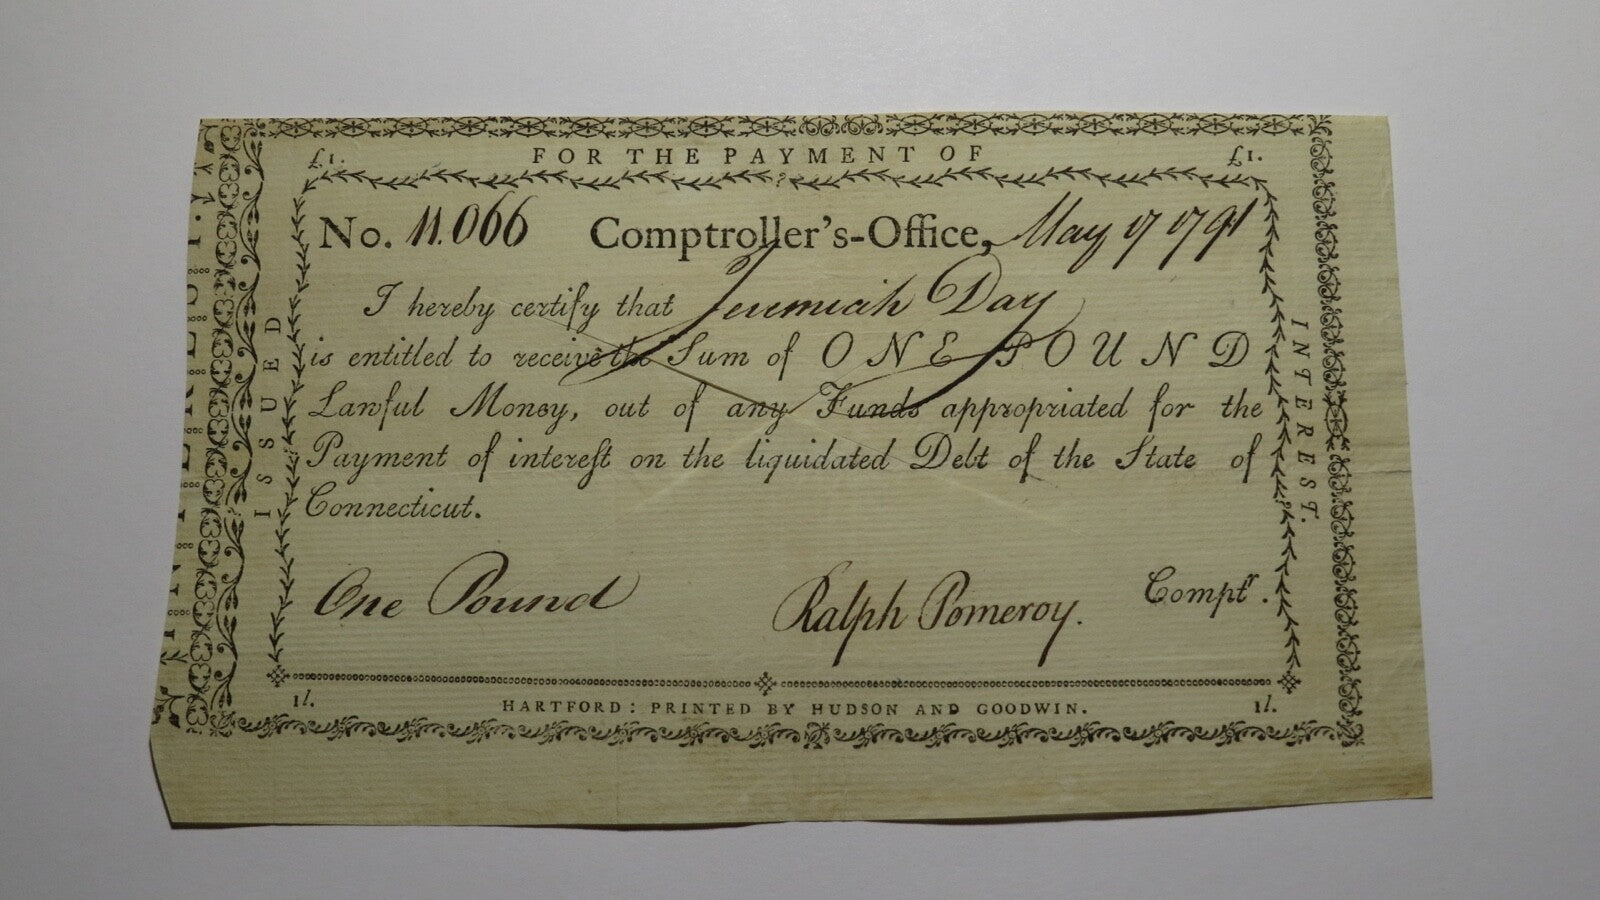 £1. FOR THE PAYMENT OF £1.
No. 11.066 Comptroller's-Office, May 17 1791
I hereby certify that Jeremiah Day
is entitled to receive the Sum of ONE POUND
Lawful Money, out of any Funds appropriated for the
Payment of interest on the liquidated Debt of the State of
Connecticut.
One Pound Ralph Pomeroy. Comptr.
1l. HARTFORD: PRINTED BY HUDSON AND GOODWIN. 1l.
ISSUED
INTEREST.